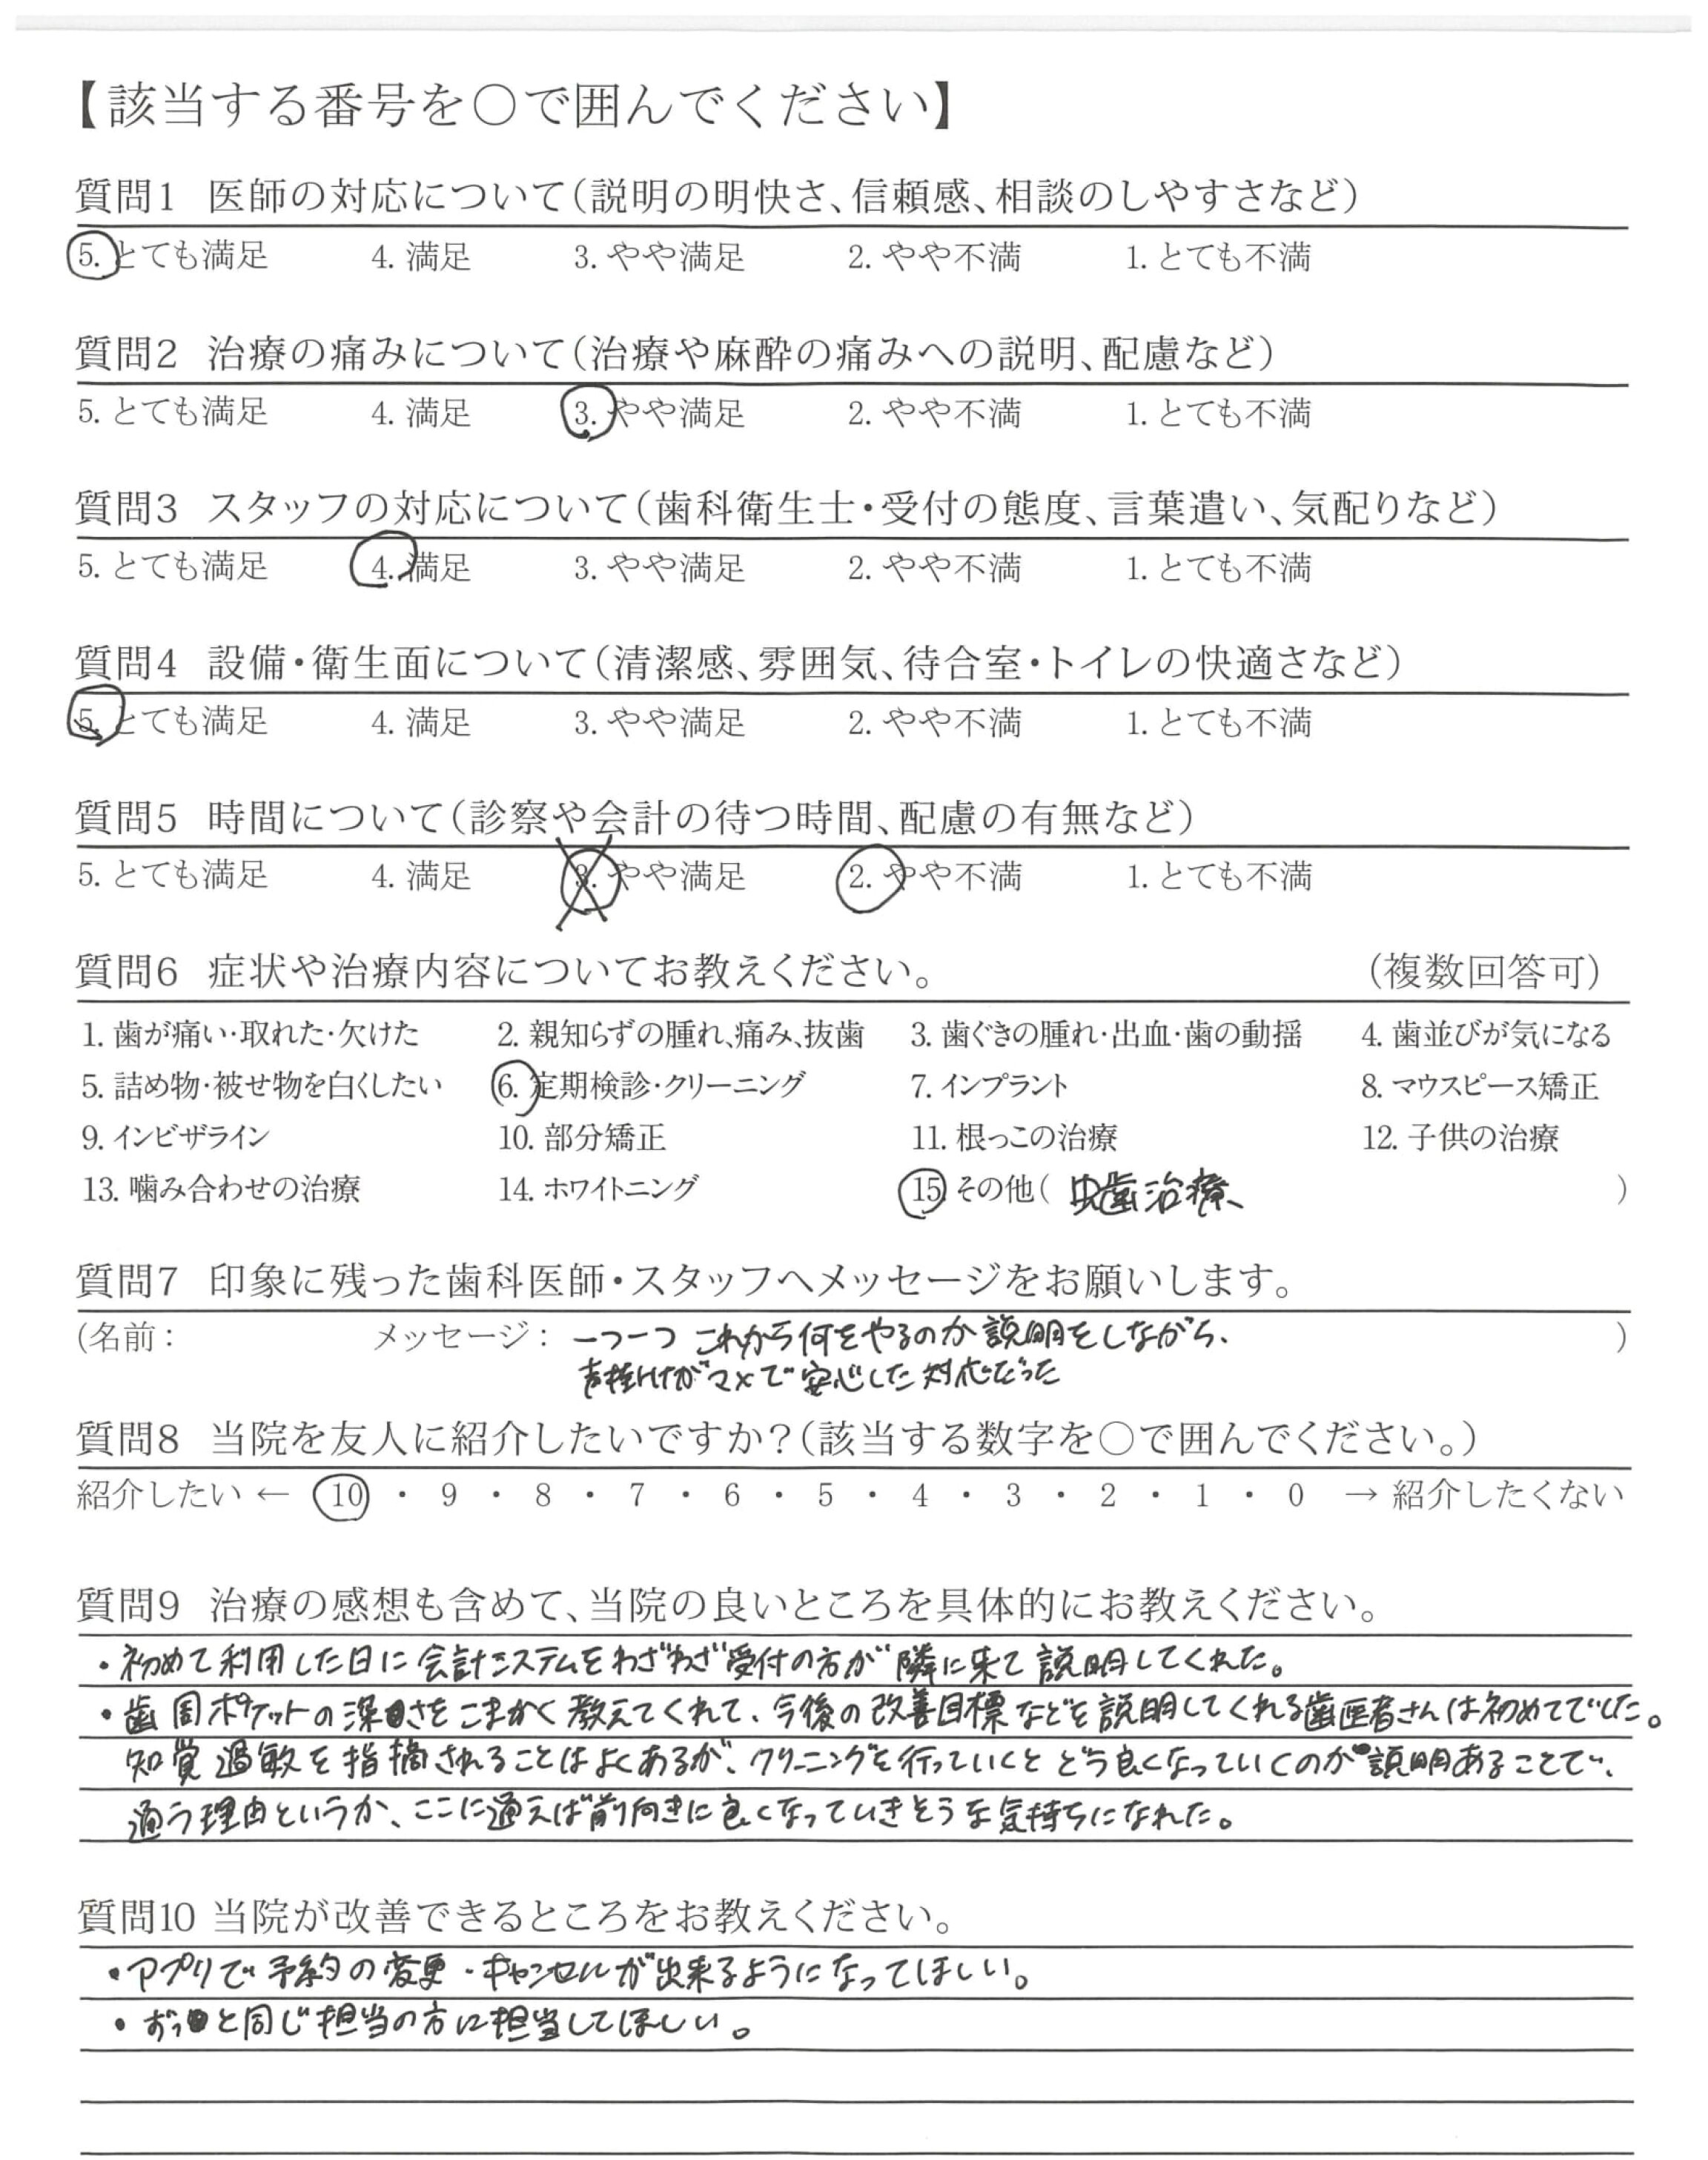 【該当する番号を○で囲んでください】
質問1 医師の対応について(説明の明快さ、信頼感、相談のしやすさなど)
5. とても満足 4. 満足 3. やや満足 2. やや不満 1. とても不満
質問2 治療の痛みについて(治療や麻酔の痛みへの説明、配慮など)
5. とても満足 4. 満足 3. やや満足 2. やや不満 1. とても不満
質問3 スタッフの対応について(歯科衛生士・受付の態度、言葉遣い、気配りなど)
5. とても満足 4. 満足 3. やや満足 2. やや不満 1. とても不満
質問4 設備・衛生面について(清潔感、雰囲気、待合室・トイレの快適さなど)
5. とても満足 4. 満足 3. やや満足 2. やや不満 1. とても不満
質問5 時間について(診察や会計の待つ時間、配慮の有無など)
5. とても満足 4. 満足 3. やや満足 2. やや不満 1. とても不満
質問6 症状や治療内容についてお教えください。 (複数回答可)
1. 歯が痛い・取れた・欠けた 2. 親知らずの腫れ、痛み、抜歯 3. 歯ぐきの腫れ・出血・歯の動揺 4. 歯並びが気になる
5. 詰め物・被せ物を白くしたい 6. 定期検診・クリーニング 7. インプラント 8. マウスピース矯正
9. インビザライン 10. 部分矯正 11. 根っこの治療 12. 子供の治療
13. 噛み合わせの治療 14. ホワイトニング 15. その他( 虫歯治療 )
質問7 印象に残った歯科医師・スタッフへメッセージをお願いします。
(名前: メッセージ: 一つ一つ これから何をやるのか説明をしながら、 )
声掛けがマメで安心した対応だった
質問8 当院を友人に紹介したいですか?(該当する数字を○で囲んでください。)
紹介したい ← 10 ・ 9 ・ 8 ・ 7 ・ 6 ・ 5 ・ 4 ・ 3 ・ 2 ・ 1 ・ 0 → 紹介したくない
質問9 治療の感想も含めて、当院の良いところを具体的にお教えください。
・初めて利用した日に会計システムをわざわざ受付の方が隣に来て説明してくれた。
・歯周ポケットの深さをこまかく教えてくれて、今後の改善目標などを説明してくれる歯医者さんは初めてでした。
知覚過敏を指摘されることはよくあるが、クリーニングを行っていくとどう良くなっていくのか説明あることで、
通う理由というか、ここに通えば前向きに良くなっていきそうな気持ちになれた。
質問10 当院が改善できるところをお教えください。
・アプリで予約の変更・キャンセルが出来るようになってほしい。
・ずっと同じ担当の方に担当してほしい。